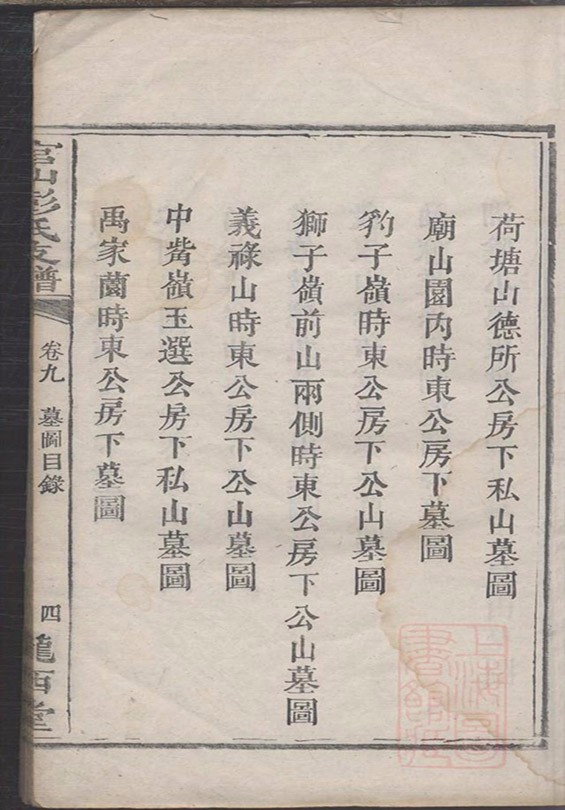 荷塘山德所公房下私山墓圖
廟山園內時東公房下墓圖
豹子嶺時東公房下公山墓圖
獅子嶺前山兩側時東公房下公山墓圖
義祿山時東公房下公山墓圖
中嵴嶺玉選公房下私山墓圖
禹家薗時東公房下墓圖
官山彭氏支譜
卷九
墓圖目錄
四
隴西堂
上海圖書館藏